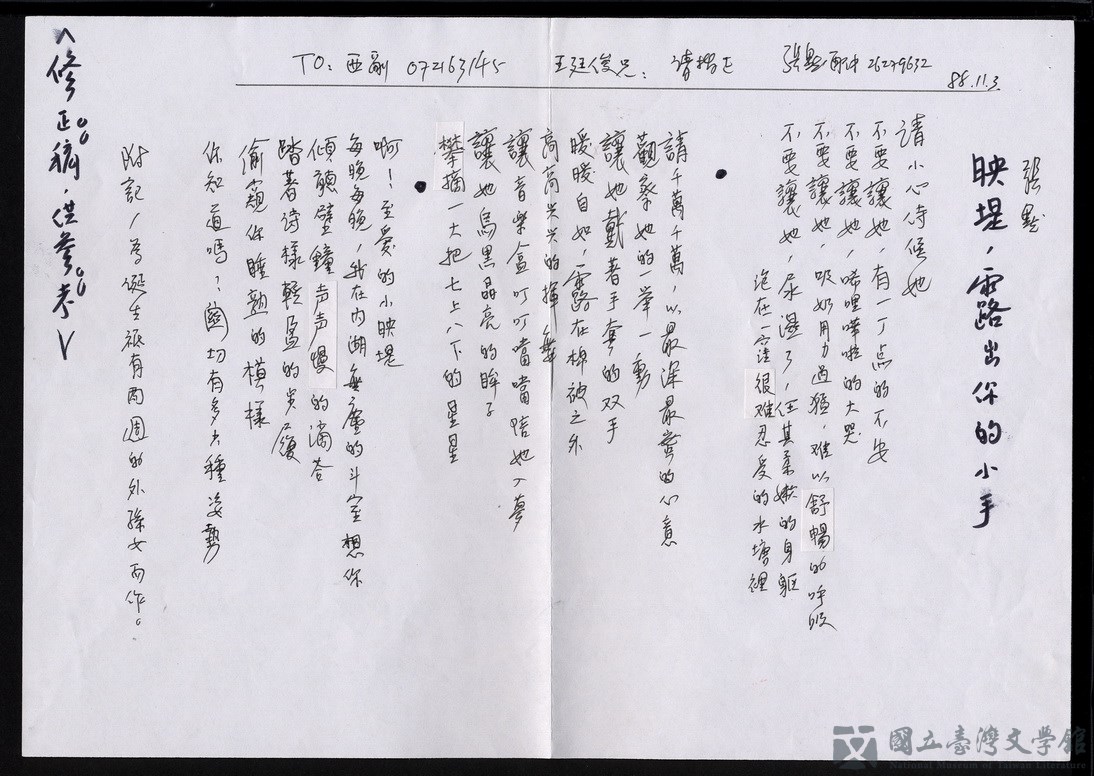 TO: 西副 072163145 王廷俊兄: 請指正 張默 26279632
88.11.3
張默
映堤，露出你的小手
请小心侍候她
不要讓她，有一丁点的不安
不要讓她，唏哩嘩啦的大哭
不要讓她，吸奶用力過猛，难以舒暢的呼吸
不要讓她，尿濕了，任其柔嫩的身軀
泡在一窪很难忍受的水塘裡
●
請千萬千萬，以最深最密的心意
觀察她的一舉一動
讓她戴著手套的双手
暖暖自如，露在棉被之外
高高兴兴的揮舞
讓音樂盒叮叮噹噹陪她入夢
讓她烏黑晶亮的眸子
攀摘一大把七上八下的星星
●
啊！至愛的小映堤
每晚每晚，我在内湖無塵的斗室想你
傾聽壁鐘声声慢的滴答
踏著诗樣輕盈的步履
偷窺你睡熟的模樣
你知道嗎？图切有多少種姿勢
附記/為誕生祇有两週的外孫女而作。
<修正稿，供參考>
國立臺灣文學館
National Museum of Taiwan Literature